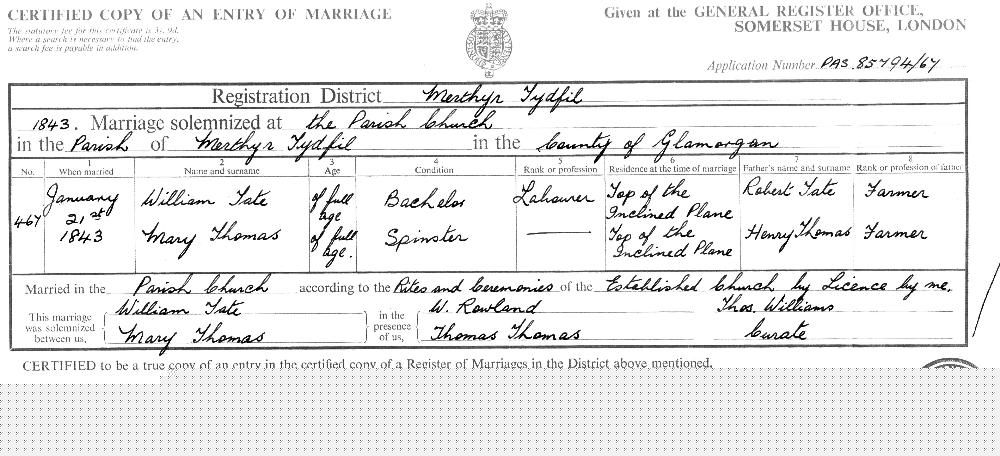 CERTIFIED COPY OF AN ENTRY OF MARRIAGE
Given at the GENERAL REGISTER OFFICE,
SOMERSET HOUSE, LONDON
The statutory fee for this certificate is 3s. 9d.
Where a search is necessary to find the entry,
a search fee is payable in addition.
Application Number PAS 85794/67
Registration District Merthyr Tydfil
1843. Marriage solemnized at the Parish Church
in the Parish of Merthyr Tydfil in the County of Glamorgan
1 2 3 4 5 6 7 8
No. When married Name and surname Age Condition Rank or profession Residence at the time of marriage Father's name and surname Rank or profession of father
467 January 21st 1843 William Tate of full age Bachelor Labourer Top of the Inclined Plane Robert Tate Farmer
Mary Thomas of full age. Spinster Top of the Inclined Plane Henry Thomas Farmer
Married in the Parish Church according to the Rites and Ceremonies of the Established Church by Licence by me,
This marriage was solemnized between us, William Tate Mary Thomas in the presence of us, W. Rowland Thomas Thomas Thos. Williams Curate
CERTIFIED to be a true copy of an entry in the certified copy of a Register of Marriages in the District above mentioned.